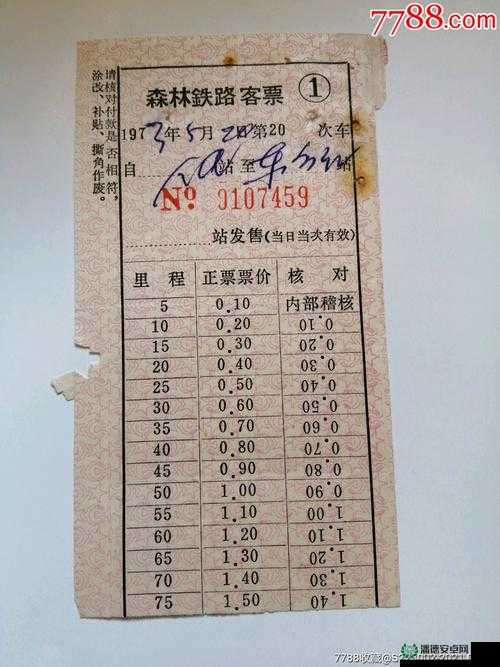 7788.com
请核对付款是否相符，
涂改、补贴、撕角作废。
森林鉄路客票 ①
1973年5月20日第20次车
自 站至 站
No 0107459
站发售(当日当次有效)
里程 正票票价 核对
5 0.10 内部稽核
10 0.20 0.10
15 0.30 0.20
20 0.40 0.30
25 0.50 0.40
30 0.60 0.50
35 0.70 0.60
40 0.80 0.70
45 0.90 0.80
50 1.00 0.90
55 1.10 1.00
60 1.20 1.10
65 1.30 1.20
70 1.40 1.30
75 1.50 1.40
潘德安卓网
7788收藏